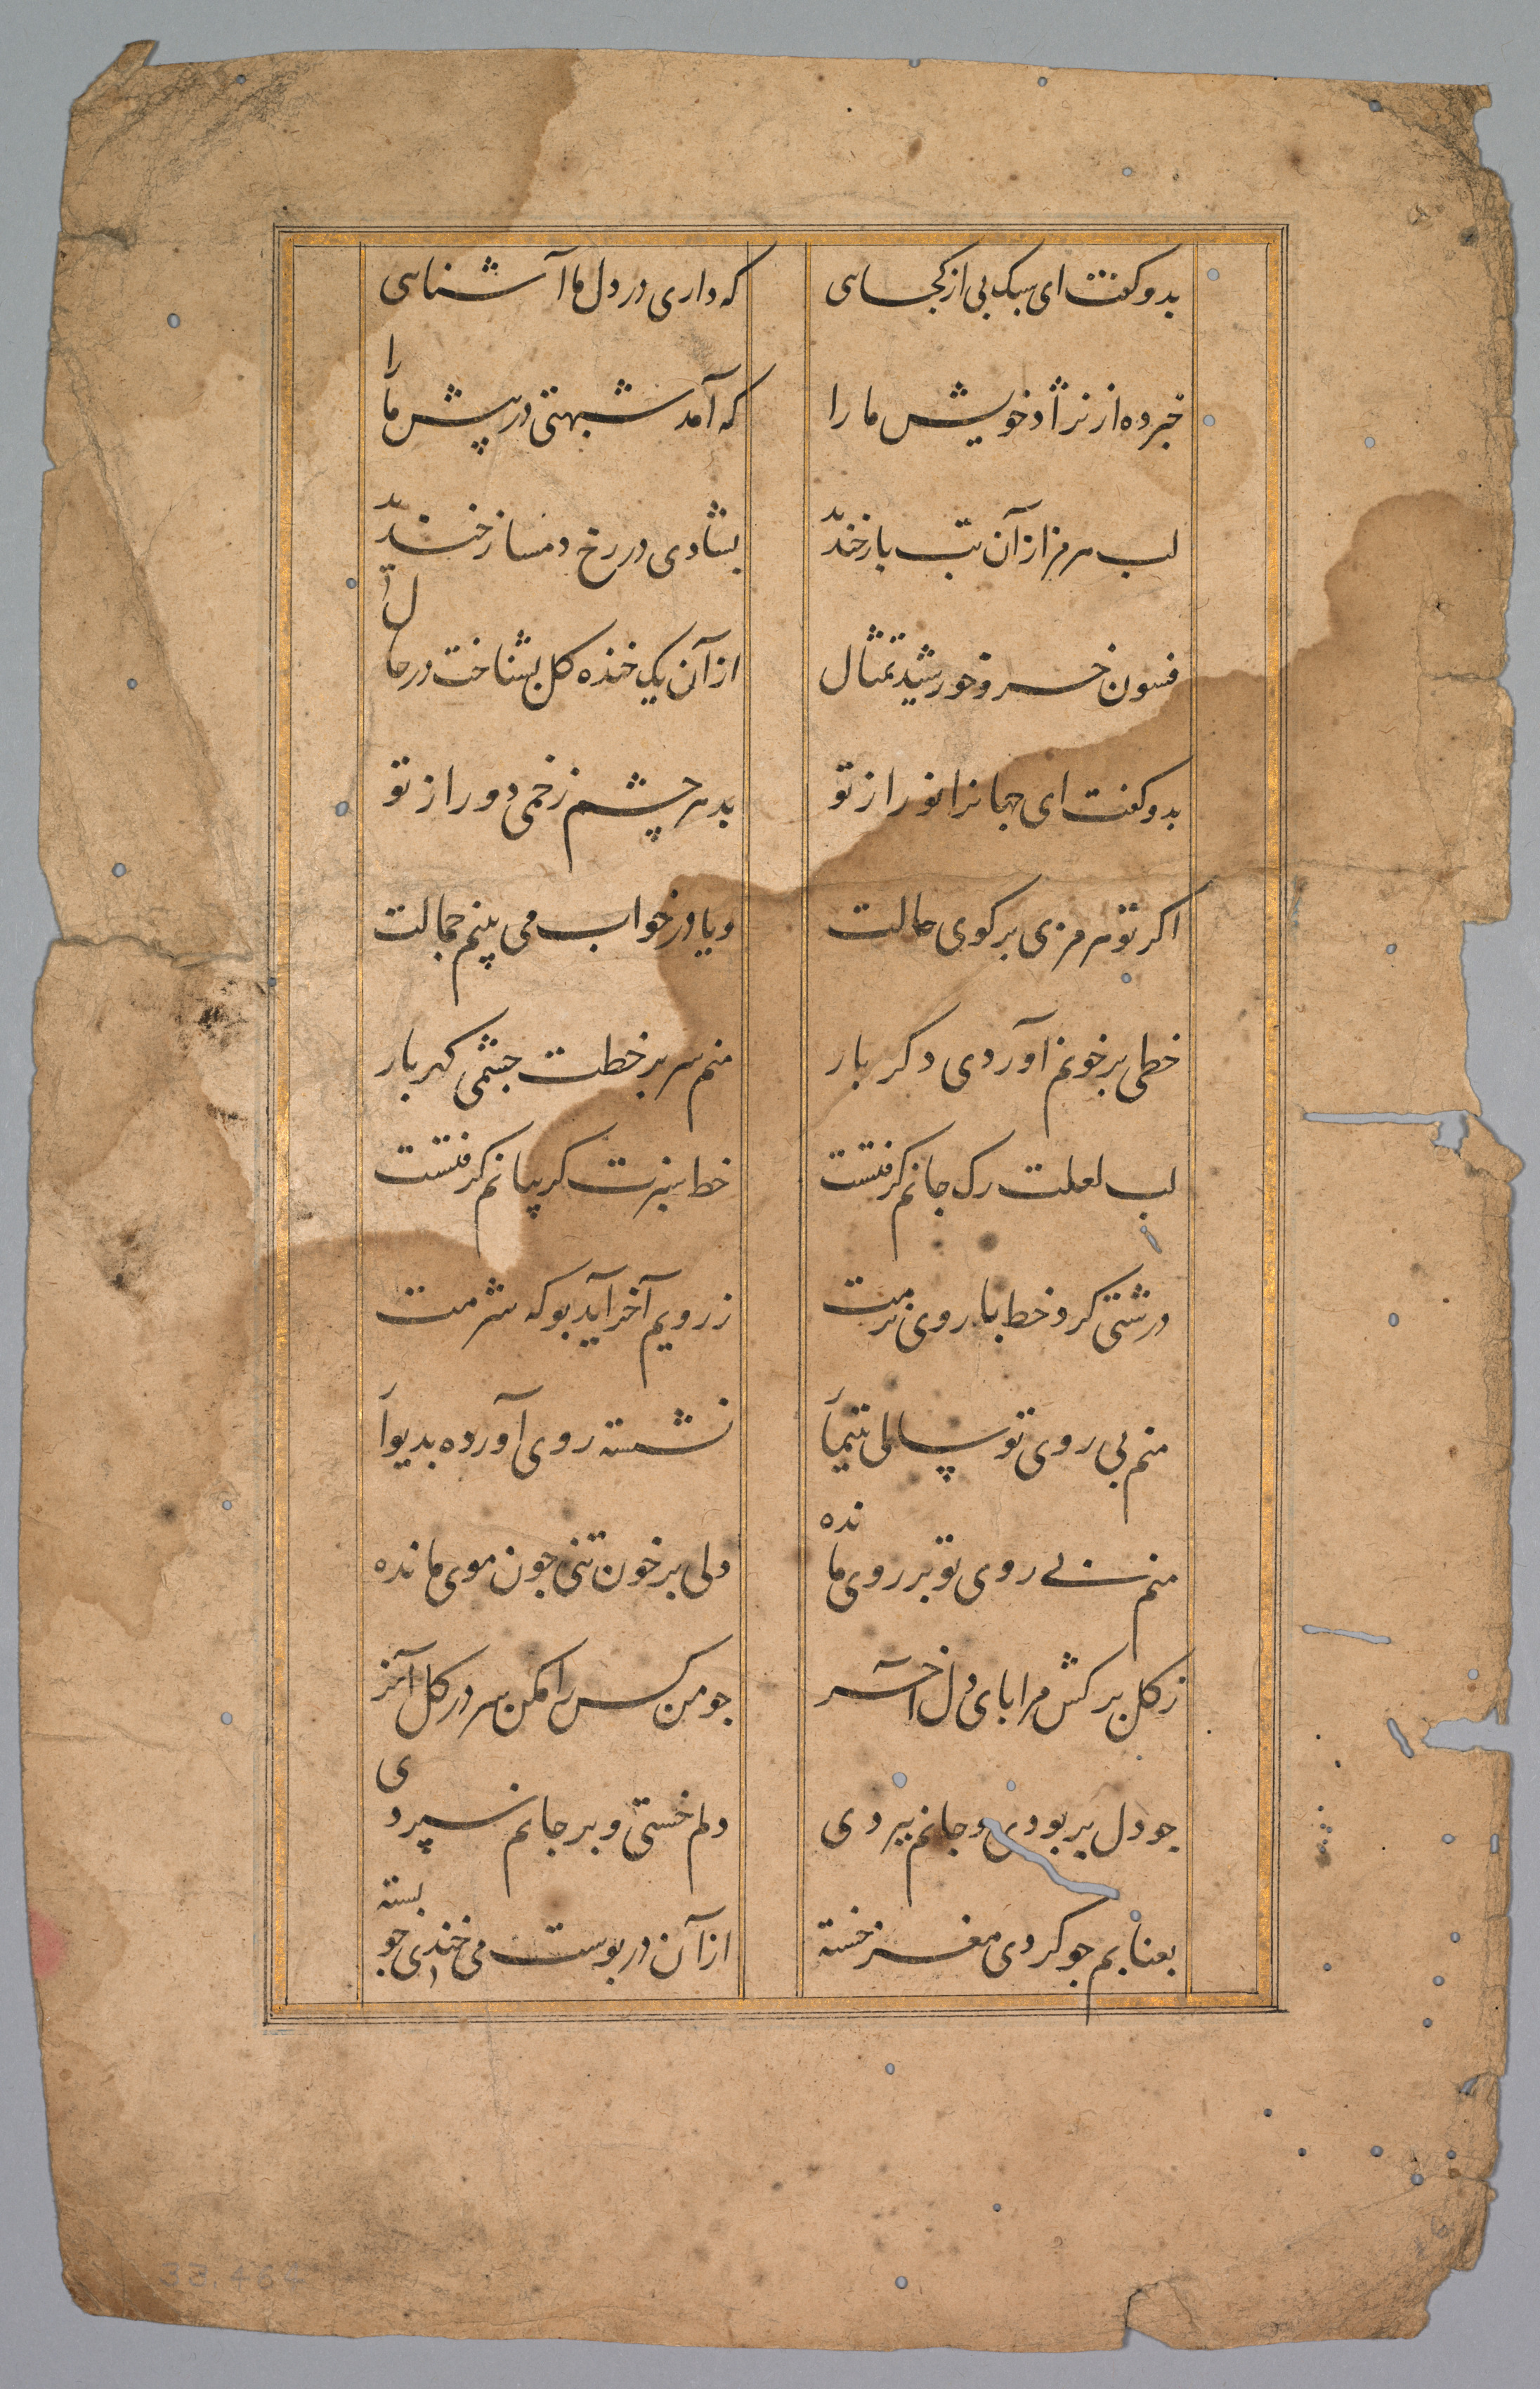 بدو کفت ای سبک پی از کجایی که داری در دل ما آشنایی
خبر ده از نژاد خویش ما را که آمد شبهتی در پیش ما را
لب هرمز از آن تب باز خندید بشادی در رخ دمساز خندید
فسون خسرو خورشید تمثال از آن یک خنده کل بشناخت در حال
بدو کفت ای جهانرا نور از تو بد هر چشم زخمی دور از تو
اکر تو هرمزی بر کوی حالت و یا در خواب می بینم جمالت
خطی بر خونم آوردی دکر بار منم سر بر خطت چشمی کهربار
لب لعلت رک جانم کرفتست خط سبزت کریبانم کرفتست
درشتی کرد خط با روی نرمت ز رویم آخر آید بو که شرمت
منم بی روی تو سالی تیمار نشسته روی آورده بدیوار
منم بی روی تو بر روی مانده دلی بر خون تنی جون موی مانده
ز کل بر کش مرا بای دل آخر جو من کس را مکن سر در کل آخر
جو دل بربودی و جانم ببردی دلم خستی و بر جانم سپردی
بعنابم جو کردی مغز خسته از آن در بوست می خندی جو بسته